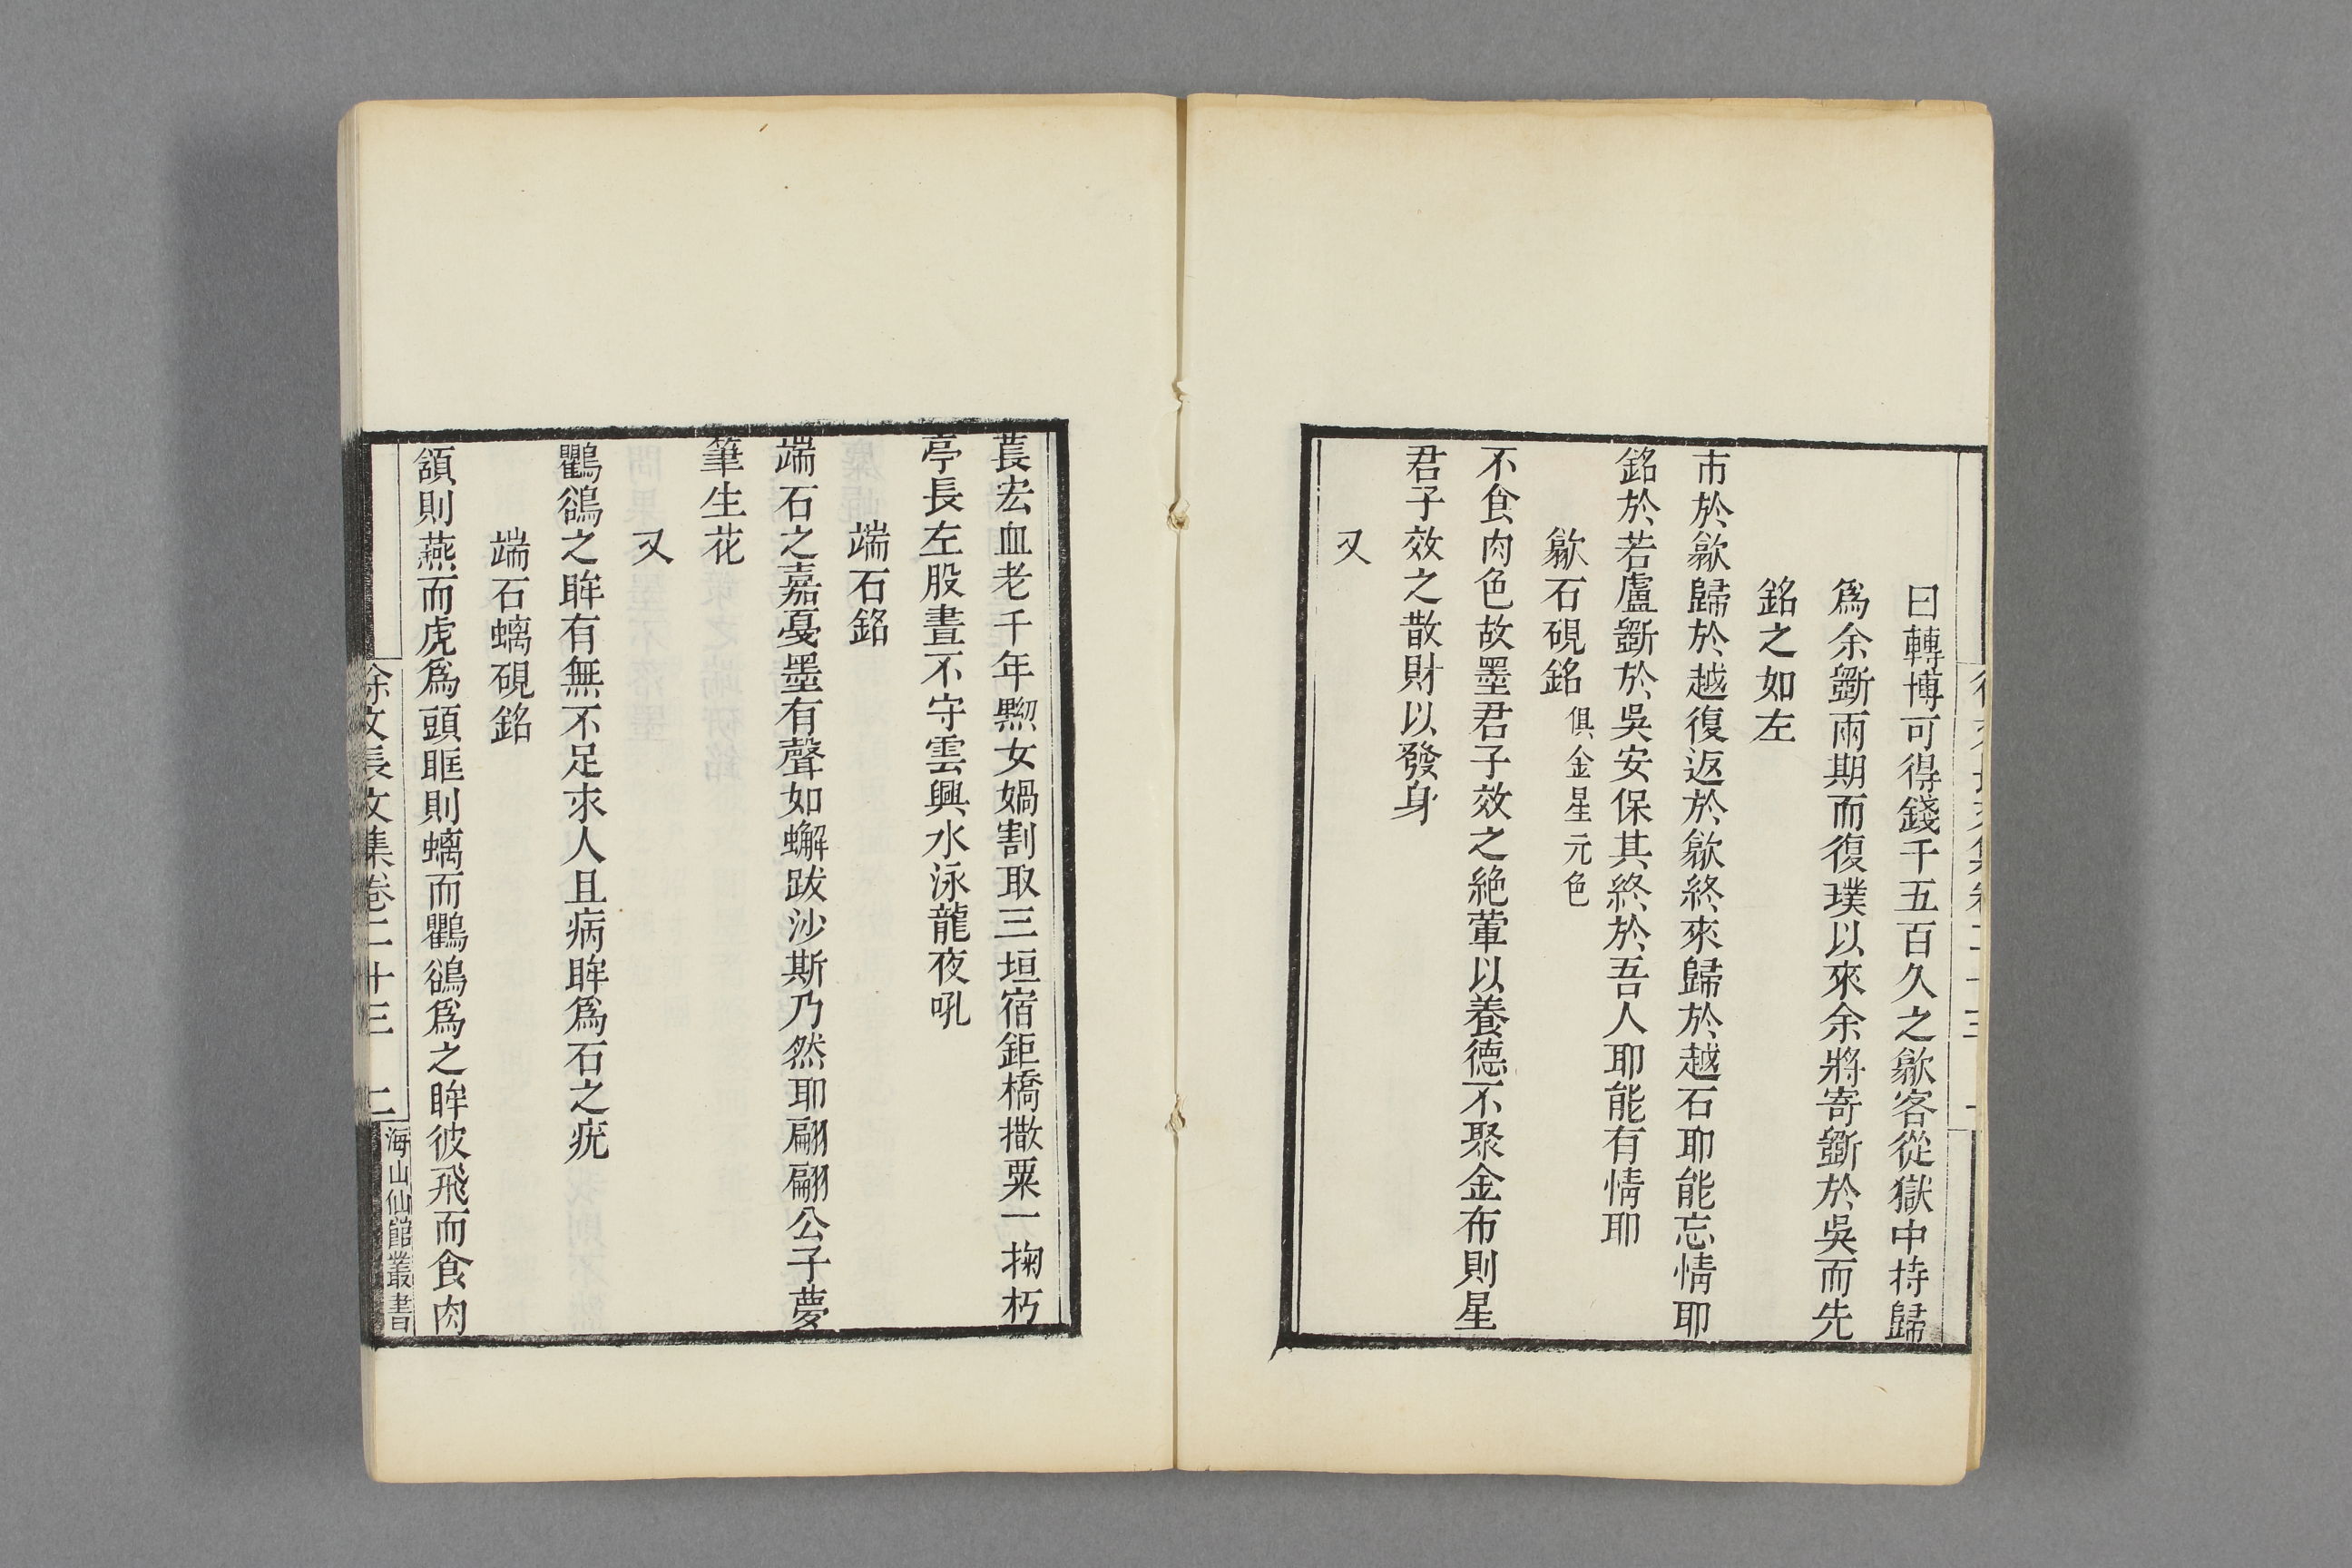 曰轉博可得錢千五百久之歙客從獄中持歸
爲余斲兩期而復璞以來余將寄斲於吳而先
銘之如左
市於歙歸於越復返於歙終來歸於越石耶能忘情耶
銘於若盧斲於吳安保其終於吾人耶能有情耶
歙石硯銘俱金星元色
不食肉色故墨君子效之絶葷以養德不聚金布則星
君子效之散財以發身
又
萇宏血老千年黦女媧割取三垣宿鉅橋撒粟一掬朽
亭長左股晝不守雲興水泳龍夜吼
端石銘
端石之嘉戞墨有聲如蠏跋沙斯乃然耶翩翩公子夢
筆生花
又
鸜鵒之眸有無不足求人且病眸爲石之疣
端石螭硯銘
頷則燕而虎爲頭眶則螭而鸜鵒爲之眸彼飛而食肉
徐文長文集卷二十三 二
海山仙館叢書